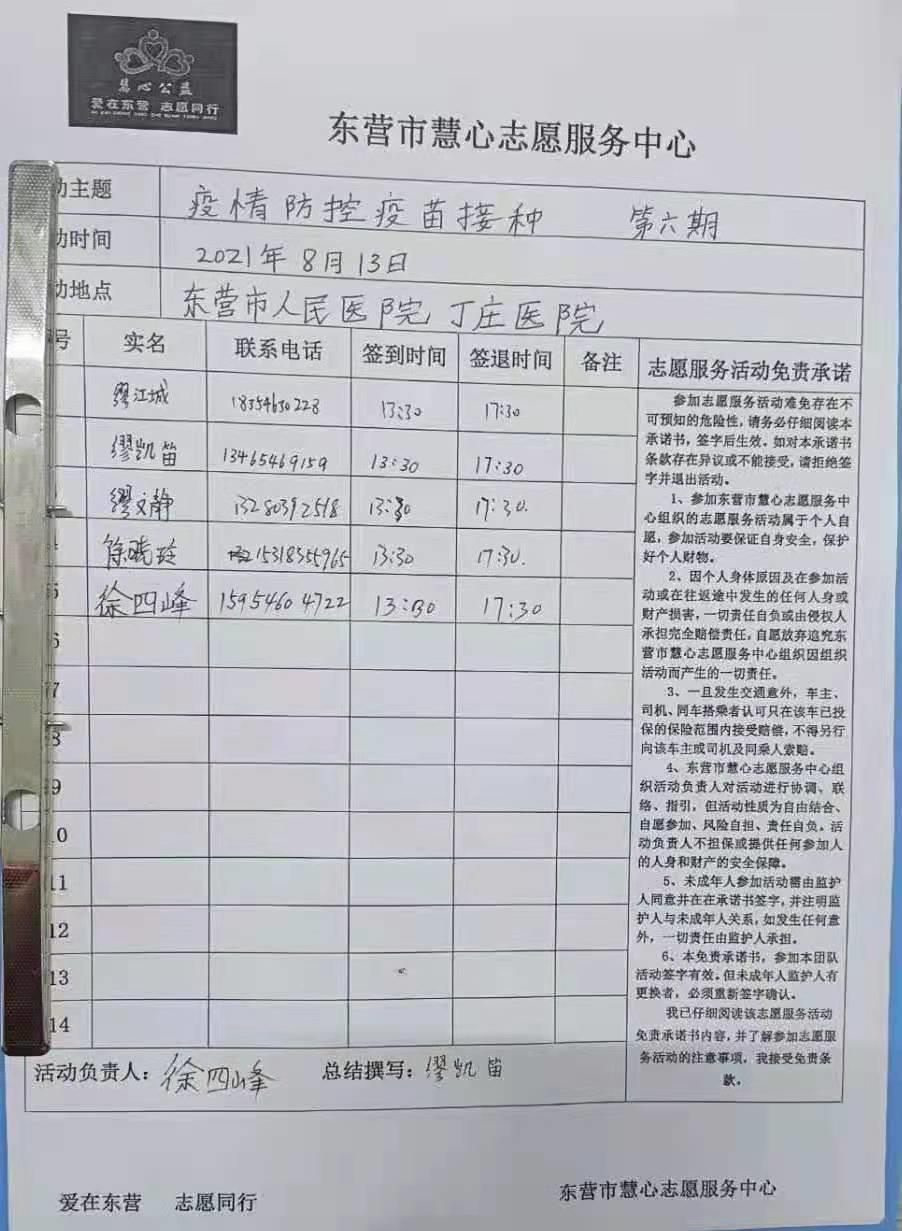 慧心公益
爱在东营 志愿同行
东营市慧心志愿服务中心
动主题 疫情防控疫苗接种 第六期
动时间 2021年8月13日
动地点 东营市人民医院 丁庄医院
号 实名 联系电话 签到时间 签退时间 备注
缪江城 18354630228 13:30 17:30
缪凯笛 13465469159 13:30 17:30
缪文静 13280392518 13:30 17:30.
徐晓玲 15318355965 13:30 17:30.
5 徐四峰 15954604722 13:30 17:30
6
7
8
9
10
11
12
13
14
志愿服务活动免责承诺
参加志愿服务活动难免存在不
可预知的危险性，请务必仔细阅读本
承诺书，签字后生效。如对本承诺书
条款存在异议或不能接受，请拒绝签
字并退出活动。
1、参加东营市慧心志愿服务中
心组织的志愿服务活动属于个人自
愿，参加活动要保证自身安全，保护
好个人财物。
2、因个人身体原因及在参加活
动或在往返途中发生的任何人身或
财产损害，一切责任自负或由侵权人
承担完全赔偿责任，自愿放弃追究东
营市慧心志愿服务中心组织因组织
活动而产生的一切责任。
3、一旦发生交通意外，车主、
司机、同车搭乘者认可只在该车已投
保的保险范围内接受赔偿，不得另行
向该车主或司机及同乘人索赔。
4、东营市慧心志愿服务中心组
织活动负责人对活动进行协调、联
络、指引，但活动性质为自由结合、
自愿参加、风险自担、责任自负。活
动负责人不担保或提供任何参加人
的人身和财产的安全保障。
5、未成年人参加活动需由监护
人同意并在在承诺书签字，并注明监
护人与未成年人关系，如发生任何意
外，一切责任由监护人承担。
6、本免责承诺书，参加本团队
活动签字有效。但未成年人监护人有
更换者，必须重新签字确认。
我已仔细阅读该志愿服务活动
免责承诺书内容，并了解参加志愿服
务活动的注意事项，我接受免责条
款。
活动负责人：徐四峰 总结撰写：缪凯笛
爱在东营 志愿同行 东营市慧心志愿服务中心